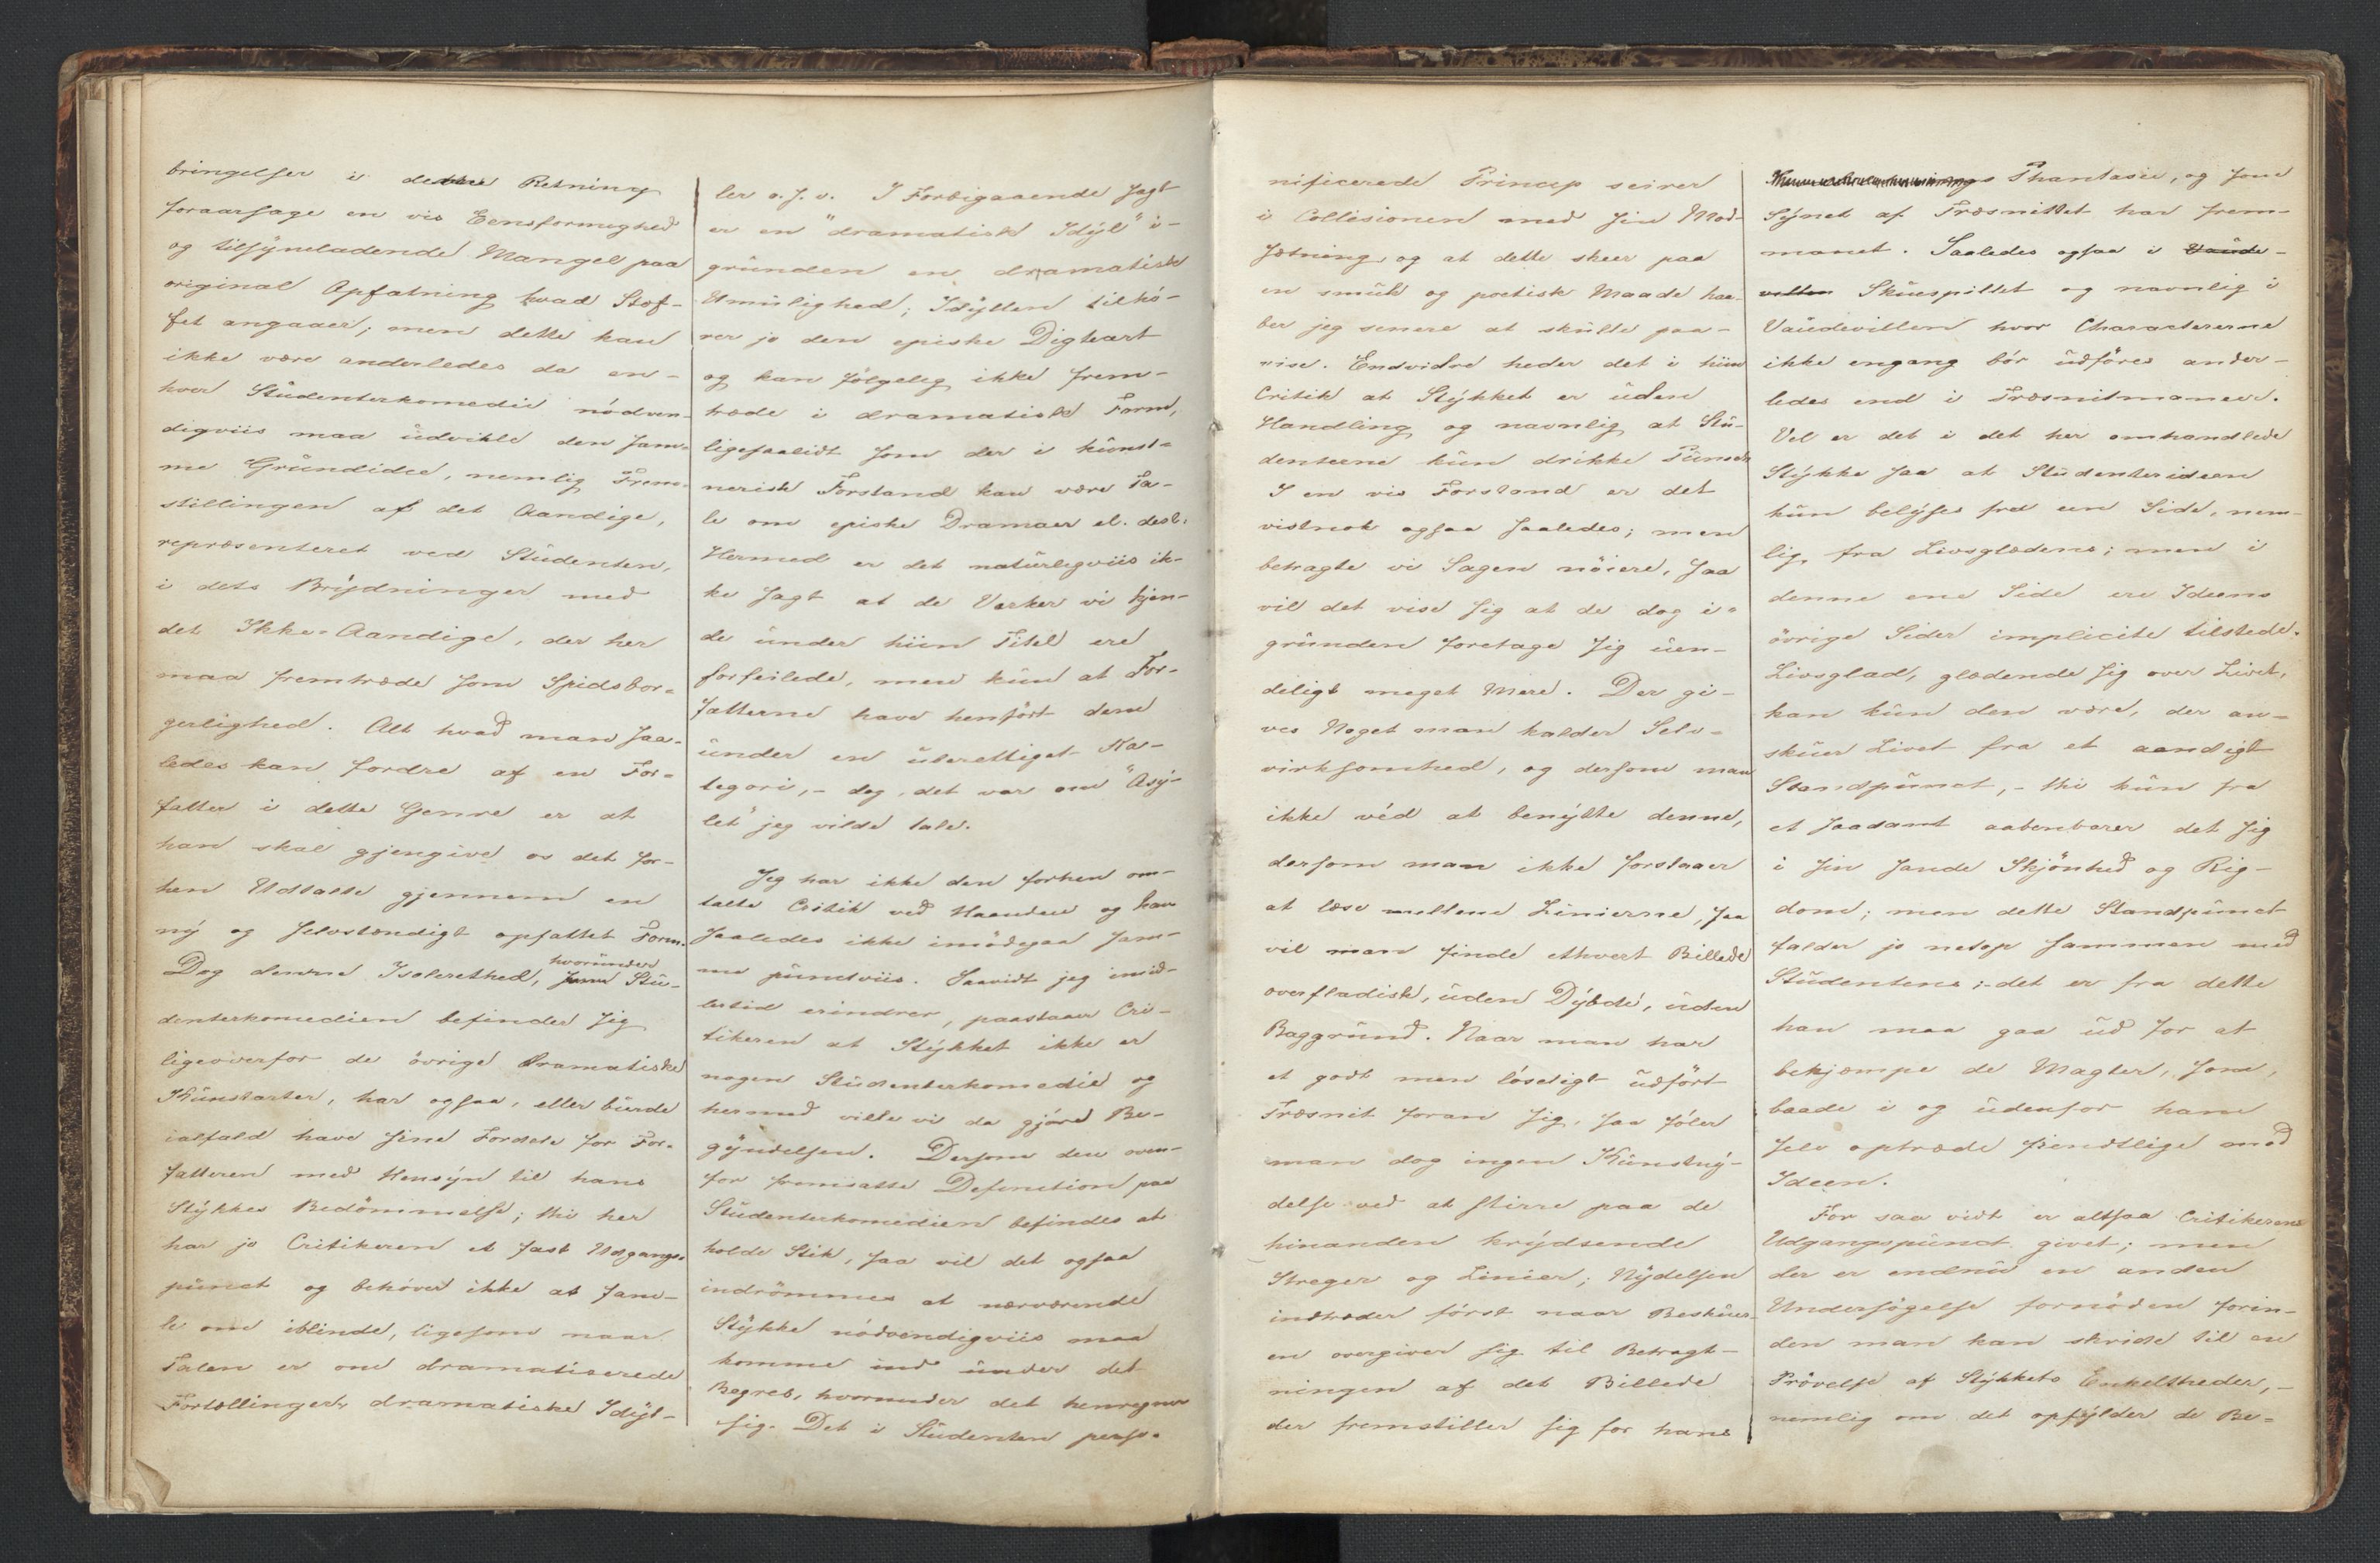 bringelser i denne Retning
foraarsage en vis Eensformighed
og tilsyneladende Mangel paa
original Opfatning hvad Stof-
fet angaaer; men dette kan
ikke være anderledes da en-
hver Studenterkomedie nödven-
digviis maa udvikle den sam-
me Grundidee, nemlig Frem-
stillingen af det Aandige,
repræsenteret ved Studenten,
i dets Brydninger med
det Ikke-Aandige, der her
maa fremtræde som Spidsbor-
gerlighed. Alt hvad man saa-
ledes kan fordre af en For-
fatter i dette Genre er at
han skal gjengive os det for-
hen Udtalte gjennem en
ny og selvstændigt opfattet Form.
Dog denne Isolerethed, hvorunder Stu-
denterkomedien befinder sig
ligeoverfor de övrige dramatiske
Kunstarter, har ogsaa, eller burde
ialfald have sine Fordele for For-
fatteren med Hensyn til hans
Stykkes Bedömmelse; thi her
har jo Critikeren et fast Udgangs-
punct og behöver ikke at fam-
le om iblinde, ligesom naar
Talen er om dramatiserede
Fortællinger, dramatiske Idyl-
ler o.s.v. I Forbigaaende sagt
er en "dramatisk Idyl" i-
grunden en dramatisk
Umulighed; Idyllen tilhö-
rer jo den episke Digteart
og kan fölgelig ikke frem-
træde i dramatisk Form,
ligesaalidt som der i kunst-
nerisk Forstand kan være Ta-
le om episke Dramaer el. desl.
Hermed er det naturligviis ik-
ke sagt at de Værker vi kjen-
de under hiin Titel ere
forfeilede, men kun at For-
fatterne have henfört dem
under en uberettiget Ka-
tegori, - dog, det var om "Asy-
let" jeg vilde tale.
Jeg har ikke den forhen om-
talte Critik ved Haanden og kan
saaledes ikke imödegaa sam-
me punctviis. Saavidt jeg imid-
lertid erindrer, paastaaer Cri-
tikeren at Stykket ikke er
nogen Studenterkomedie og
hermed ville vi da gjöre Be-
gyndelsen. Dersom den oven-
for fremsatte Definition paa
Studenterkomedien befindes at
holde Stik, saa vil det ogsaa
indrömmes at nærværende
Stykke nödvendigviis maa
komme ind under det
Begreb, hvorunder det henregner
sig. Det i Studenten perso-
nificerede Princip seirer
i Collisionen med sin Mod-
sætning og at dette skeer paa
en smuk og poetisk Maade haa-
ber jeg senere at skulle paa-
vise. Endvidre heder det i hiin
Critik at Stykket er uden
Handling og navnlig at Stu-
denterne kun drikke Punsch
I en vis Forstand er det
vistnok ogsaa saaledes; men
betragte vi Sagen nöiere, saa
vil det vise sig at de dog i-
grunden foretage sig uen-
deligt meget Mere. Der gi-
ves Noget man kalder Selv-
virksomhed, og dersom man
ikke véd at benytte denne,
dersom man ikke forstaaer
at læse mellem Linierne, saa
vil man finde ethvert Billede
overfladisk, uden Dybde, uden
Baggrund. Naar man har
et godt men löseligt udfört
Træsnit foran sig, saa föler
man dog ingen Kunstny-
delse ved at stirre paa de
hinanden krydsende
Streger og Linier; Nydelsen
indtræder först naar Beskuer-
en overgiver sig til Betragt-
ningen af det Billede
der fremstiller sig for hans
Phantasie, og som
Synet af Træsnittet har frem-
manet. Saaledes ogsaa i Vaude-
villen Skuespillet og navnlig i
Vaudevillen hvor Charactererne
ikke engang bör udföres ander-
ledes end i Træsnitmaneer.
Vel er det i det her omhandlede
Stykke saa at Studenterideen
kun belyses fra een Side, nem-
lig, fra Livsglædens; men i
denne ene Side ere Ideens
övrige Sider implicite tilstede.
Livsglad, glædende sig over Livet,
kan kun den være, der an-
skuer Livet fra et aandigt
Standpunct, - thi kun fra
et saadant aabenbarer det sig
i sin sande Skjönhed og Rig-
dom; men dette Standpunct
falder jo netop sammen med
Studentens; det er fra dette
han maa gaa ud for at
bekjæmpe de Magter, som,
baade i og udenfor ham
selv optræde fiendtlige mod
Ideen.
For saa vidt er altsaa Critikerens
Udgangspunct givet; men
der er endnu en anden
Undersögelse fornöden forin-
den man kan skride til en
Prövelse af Stykkets Enkeltheder, -
nemlig om det opfylder de Be-